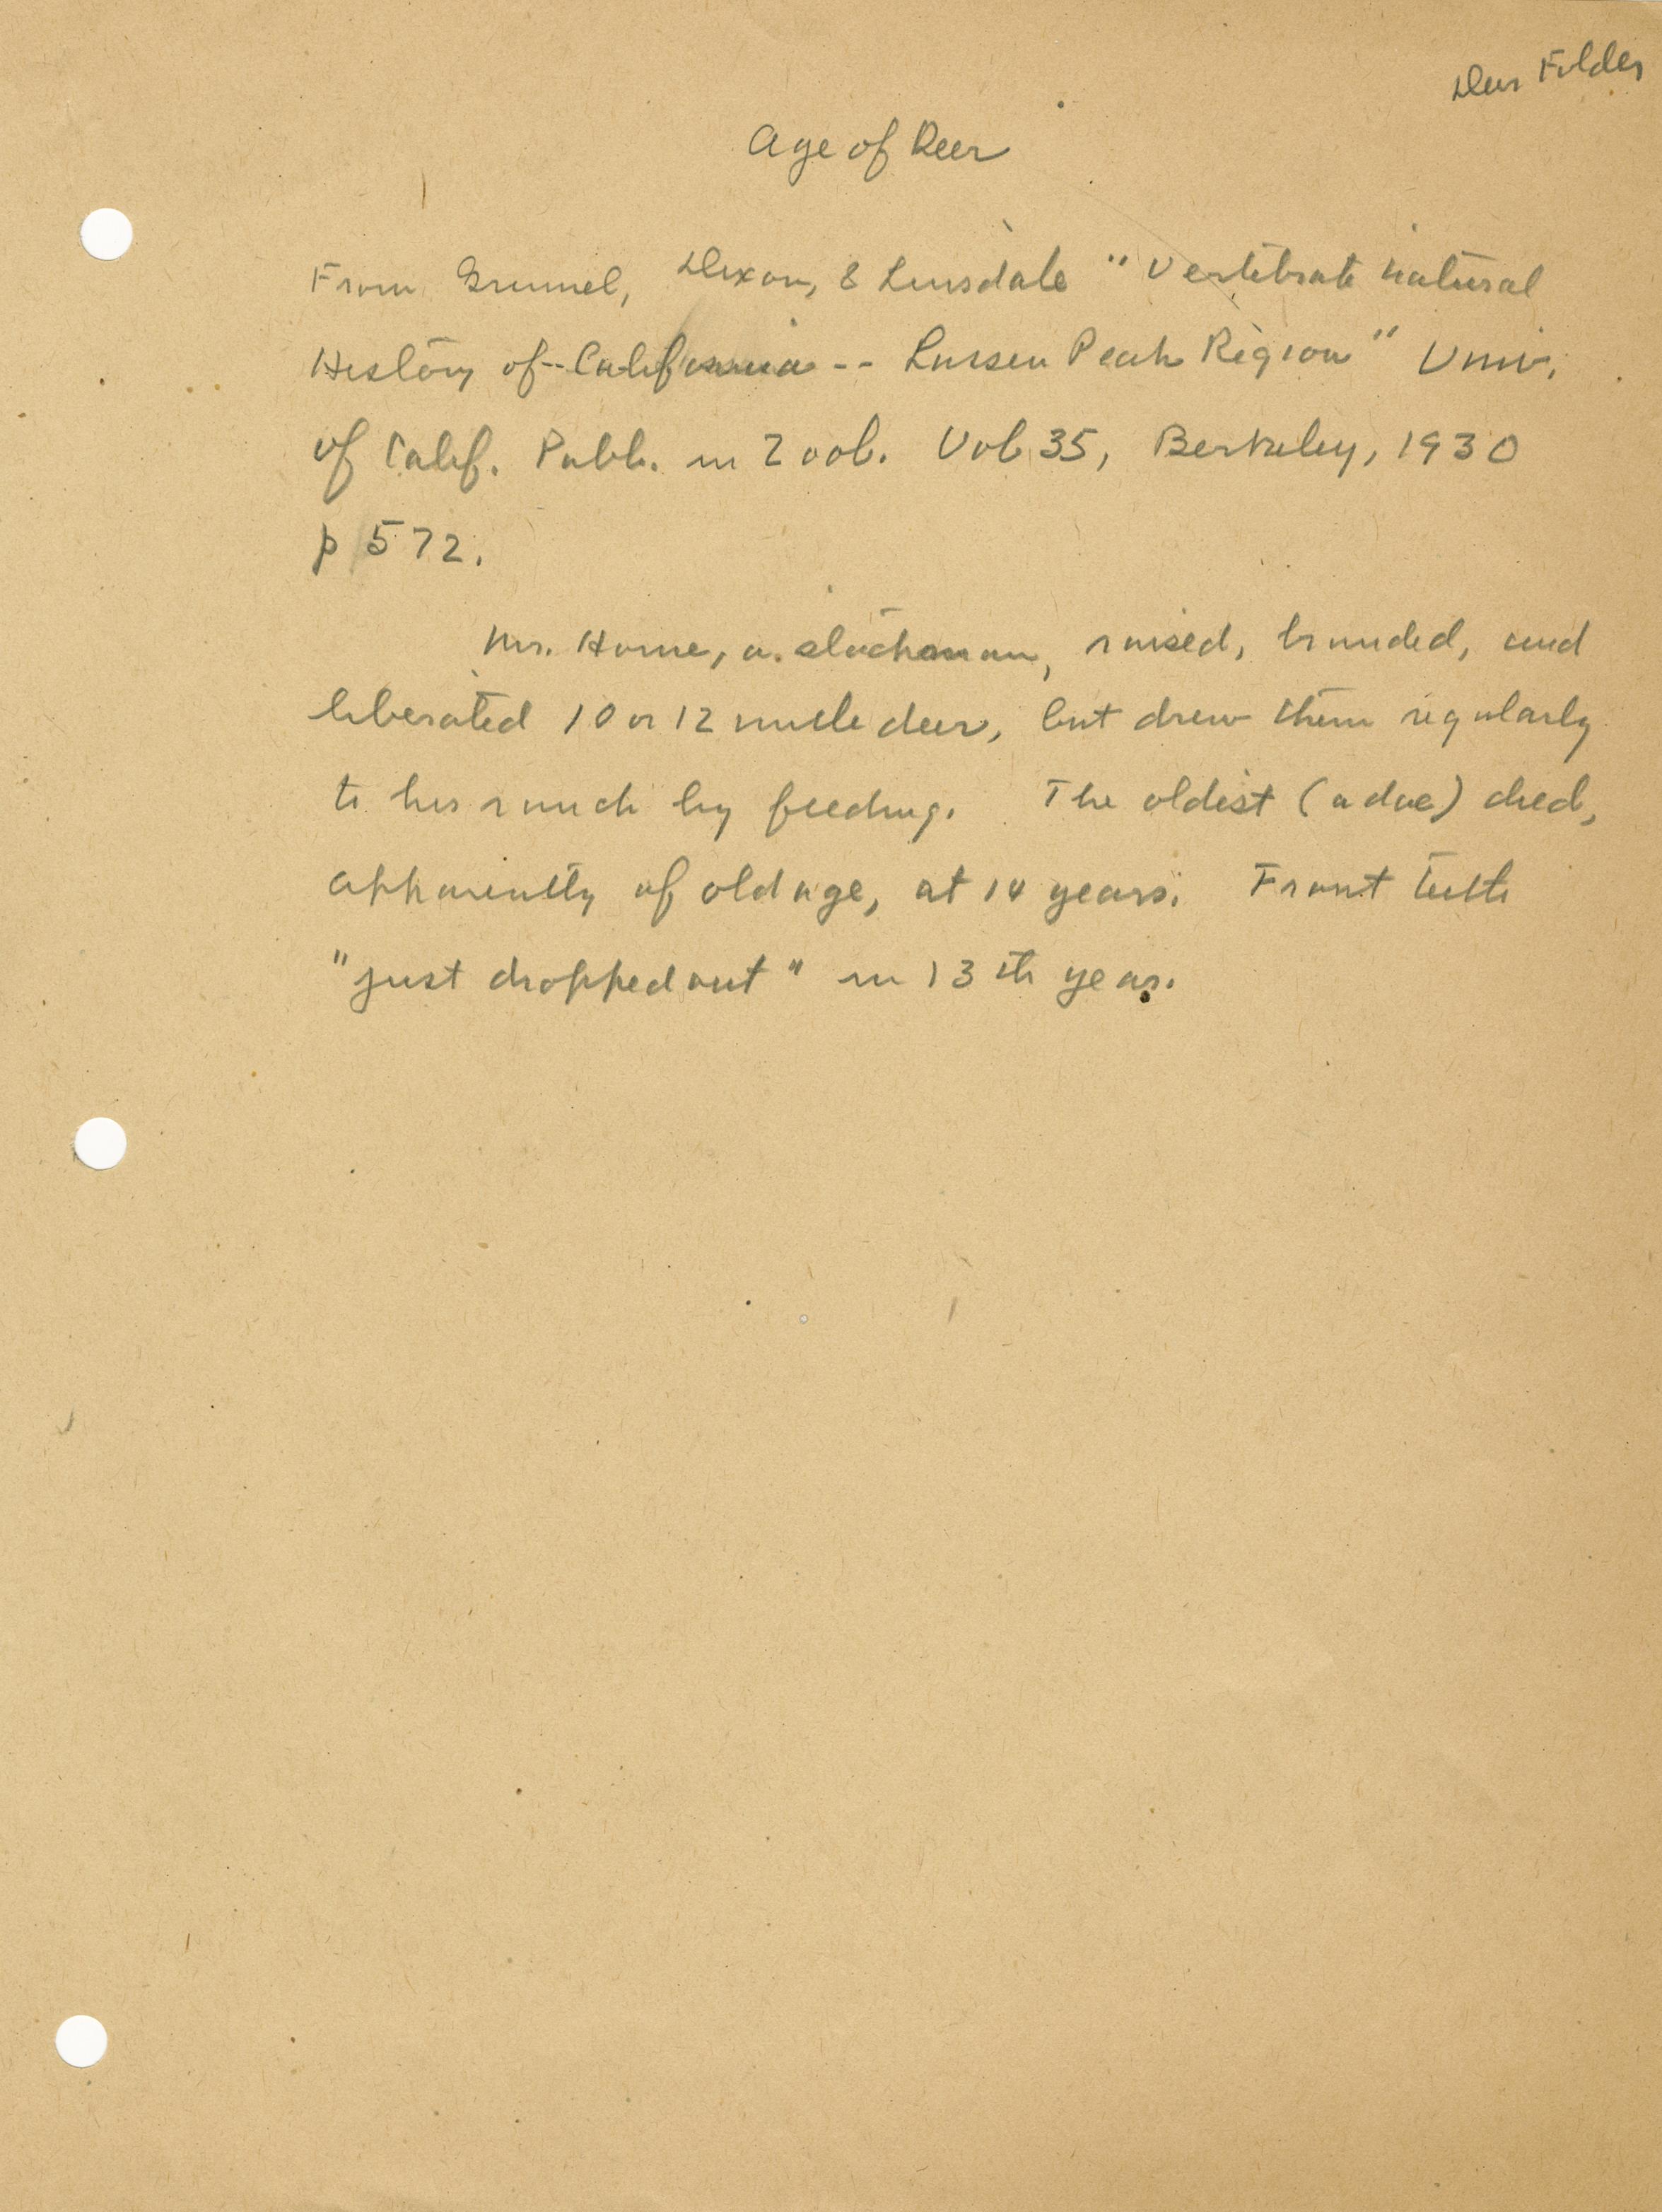 Deer Folder
Age of Deer
From Grinnel, Dixon, & Linsdale "Vertebrate natural
History of -- California -- Lassen Peak Region" Univ.
of Calif. Publ. in Zool. Vol 35, Berkeley, 1930
p 572.
Mr. Horne, a stockman, raised, branded, and
liberated 10 or 12 mule deer, but drew them regularly
to his ranch by feeding. The oldest (a doe) died,
apparently of old age, at 14 years. Front teeth
"just dropped out" in 13th year.